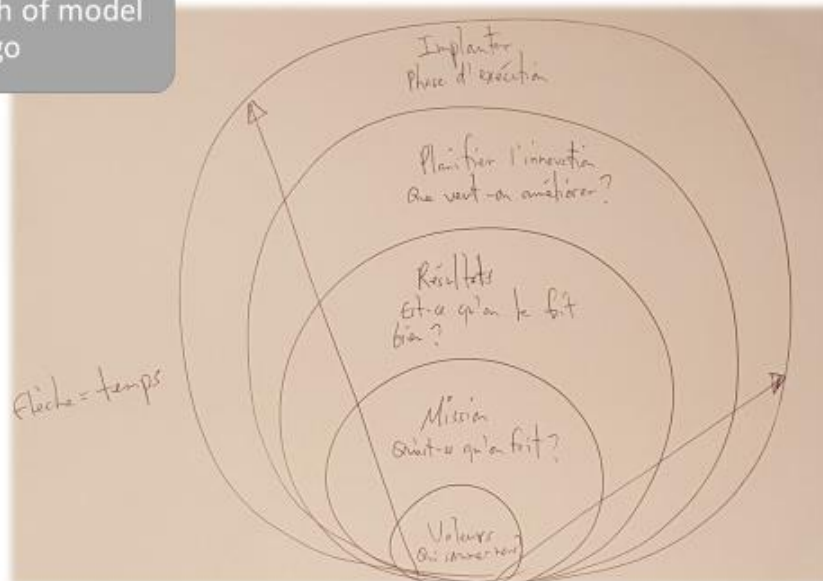 h of model
go
Implanter
Phase d'exécution
Planifier l'innovation
Que veut-on améliorer?
Résultats
Est-ce qu'on le fait
bien?
Mission
Qu'est-ce qu'on fait?
Flèche = temps
Valeurs
Qui sommes-nous?